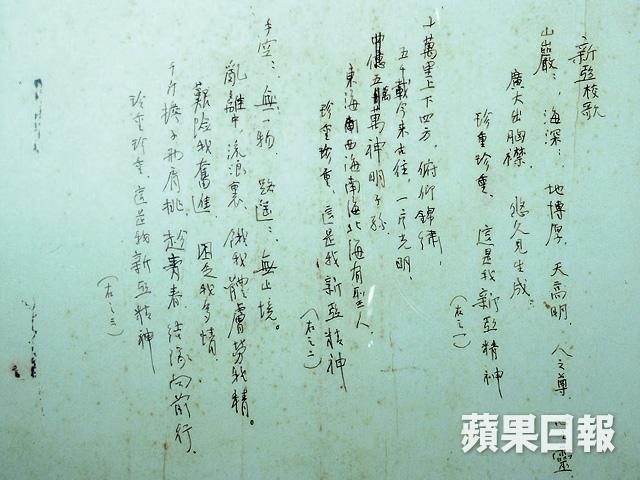 新亞校歌
山巖:,海深:,地博厚,天高明,人之尊,靈,
廣大出胸襟 悠久見生成。
珍重珍重 這是我新亞精神
(右之一)
十萬里上下四方,俯仰錦繡,
五千載今來古往,一片光明,
萬神明子孫,
東海西海南海北海有聖人
珍重珍重 這是我新亞精神
(右之二)
手空:,無一物,路遙:,無止境。
亂離中,流浪裏,餓我體膚勞我精。
艱險我奮進,困乏我多情,
千斤擔子兩肩挑,趁青春 結隊向前行.
珍重珍重,這是我新亞精神
(右之三)
蘋果日報